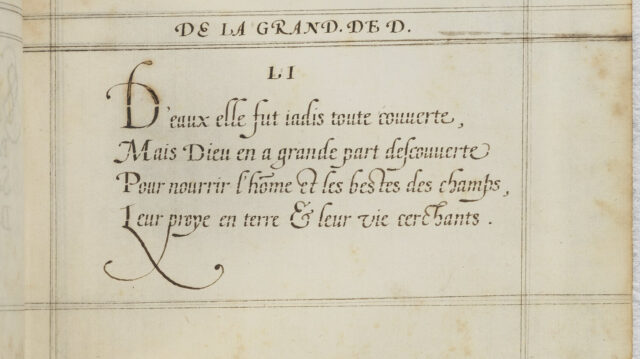 DE LA GRAND. DE D.
LI
D'eaux elle fut iadis toute couuerte,
Mais Dieu en a grande part descouuerte
Pour nourrir l'hõme et les bestes des champs,
Leur proye en terre & leur vie cerchants.